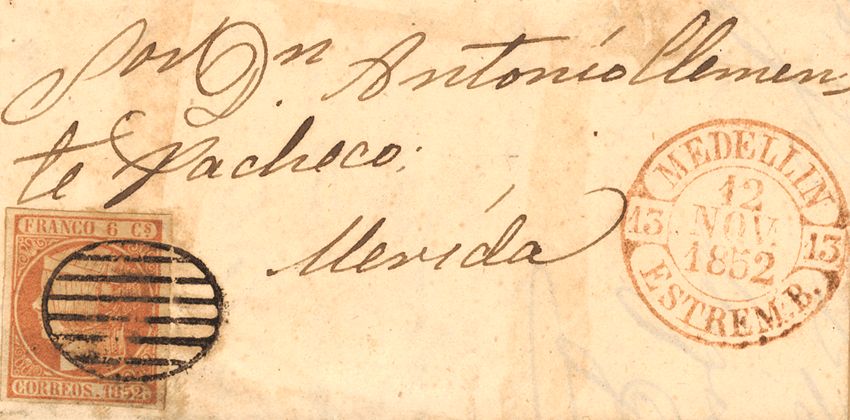 Sor Dn Antonio Clemen
te Pacheco.
Merida
FRANCO 6 Cs
CORREOS. 1852
MEDELLIN
12
NOV.
1852
13 13
ESTREM. B.